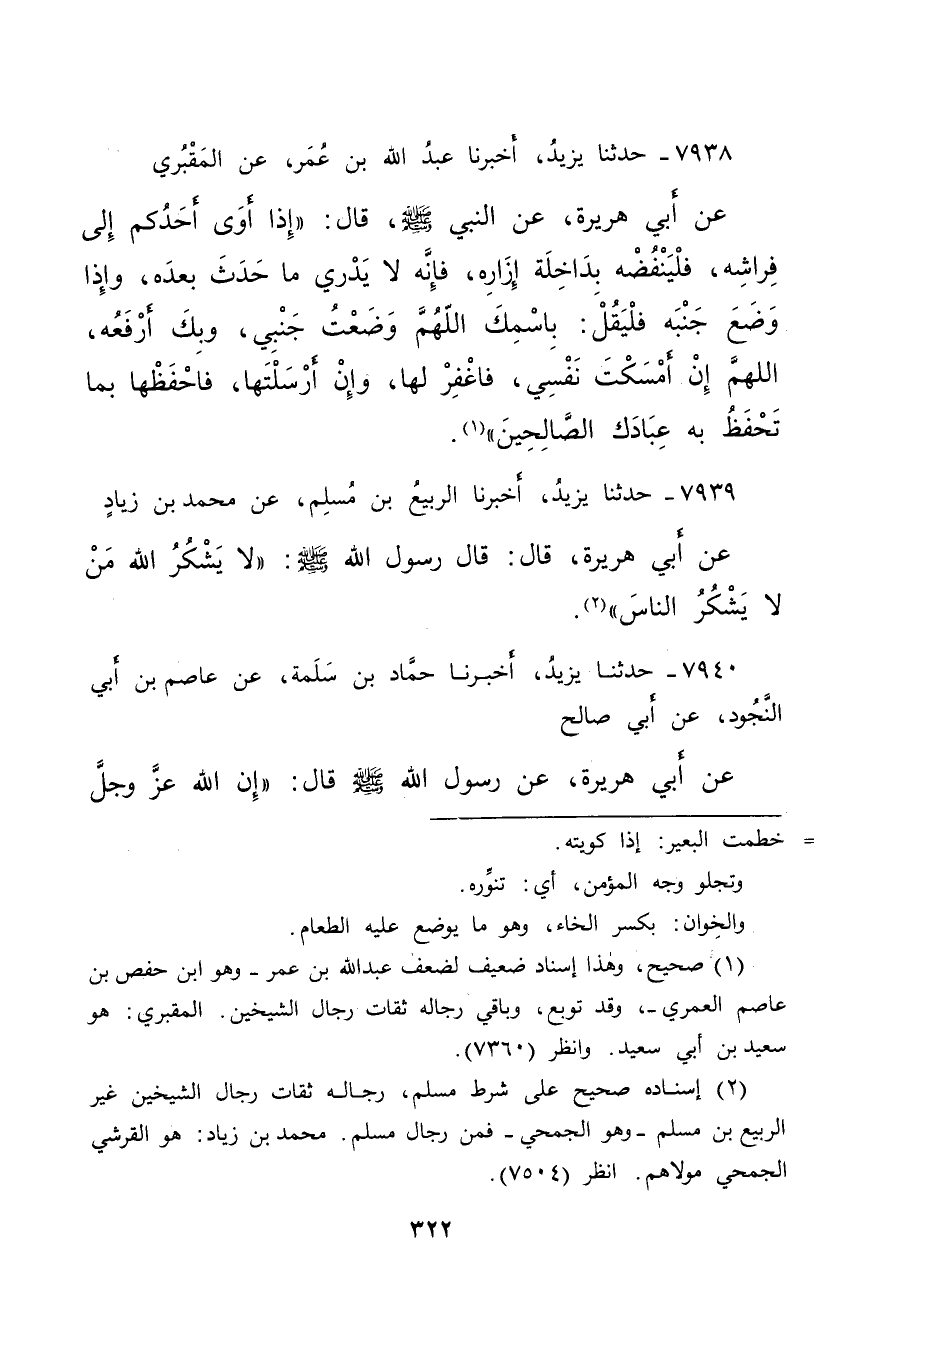 ٧٩٣٨ـ حدثنا يزيدُ، أَخبرنا عبدُ الله بن عُمَر، عن المَقْبُري
عن أَبي هريرة، عن النبي ﷺ، قال: «إِذا أَوَى أَحَدُكم إِلى
فِراشِه، فلْيَنْفُضْه بِدَاخِلَة إِزَارِه، فإِنَّه لا يَدْري ما حَدَثَ بعدَه، وإِذا
وَضَعَ جَنْبَه فليَقُلْ: بِاسْمِكَ اللّهُمَّ وَضَعْتُ جَنْبِي، وبِكَ أَرْفَعُه،
اللهمَّ إِنْ أَمْسَكْتَ نَفْسِي، فاغْفِرْ لها، وإِنْ أَرْسَلْتَها، فاحْفَظْها بما
تَحْفَظُ به عِبَادَك الصَّالِحِينَ»(١).
٧٩٣٩ـ حدثنا يزيدُ، أَخبرنا الربيعُ بن مُسلِم، عن محمد بن زيادٍ
عن أَبي هريرة، قال: قال رسول الله ﷺ: «لا يَشْكُرُ الله مَنْ
لا يَشْكُرُ الناسَ»(٢).
٧٩٤٠ـ حدثنا يزيدُ، أَخبرنا حمَّاد بن سَلَمة، عن عاصم بن أَبي
النَّجُود، عن أَبي صالح
عن أَبي هريرة، عن رسول الله ﷺ قال: «إِن الله عزَّ وجلَّ
= خطمت البعير: إذا كويته.
وتجلو وجه المؤمن، أي: تنوِّره.
والخِوان: بكسر الخاء، وهو ما يوضع عليه الطعام.
(١) صحيح، وهٰذا إسناد ضعيف لضعف عبدالله بن عمر ـ وهو ابن حفص بن
عاصم العمري ـ، وقد توبع، وباقي رجاله ثقات رجال الشيخين. المقبري: هو
سعيد بن أبي سعيد. وانظر (٧٣٦٠).
(٢) إسناده صحيح على شرط مسلم، رجاله ثقات رجال الشيخين غير
الربيع بن مسلم ـ وهو الجمحي ـ فمن رجال مسلم. محمد بن زياد: هو القرشي
الجمحي مولاهم. انظر (٧٥٠٤).
٣٢٢